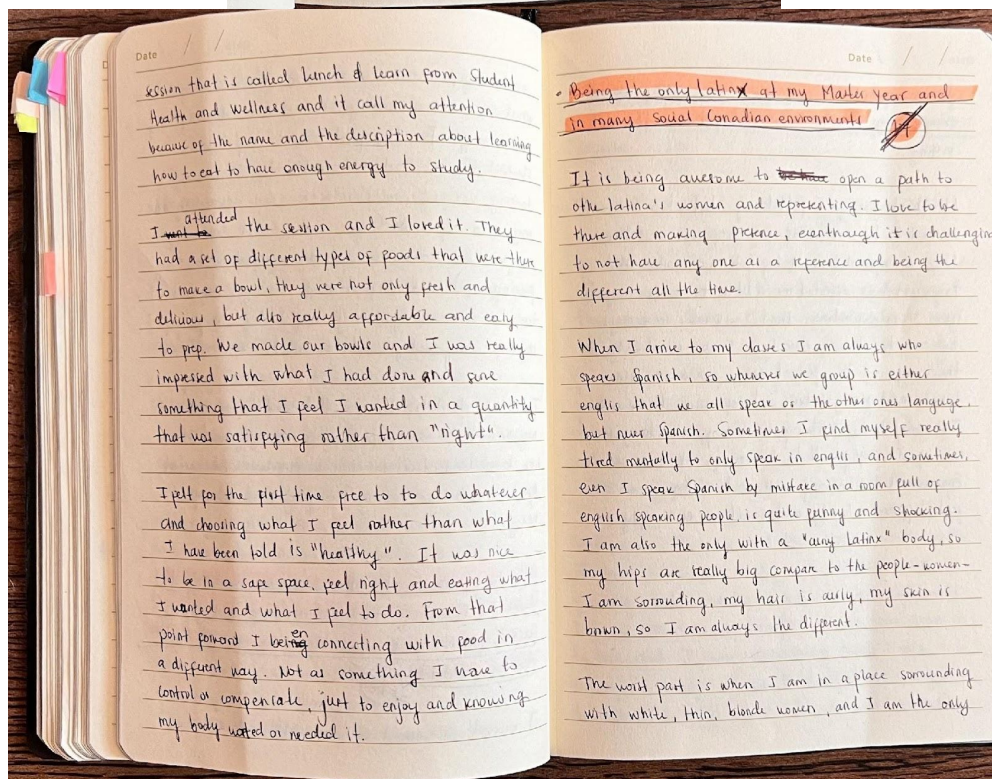 Date / /
session that is called Lunch & Learn from Student
Health and Wellness and it call my attention
because of the name and the description about learning
how to eat to have enough energy to study.
I attended the session and I loved it. They
had a set of different types of foods that were there
to make a bowl, they were not only fresh and
delicious, but also really affordable and easy
to prep. We made our bowls and I was really
impressed with what I had done and
something that I feel I wanted in a quantity
that was satisfying rather than "right".
I felt for the first time free to to do whatever
and choosing what I feel rather than what
I have been told is "healthy". It was nice
to be in a safe space, feel right and eating what
I wanted and what I feel to do. From that
point forward I been connecting with food in
a different way. Not as something I have to
control or compensate, just to enjoy and knowing
my body wated or needed it.
Date / /
• Being the only latinx at my Master year and
in many social Canadian environments
It is being awesome to open a path to
othe latina's women and representing. I love to be
there and making presence, eventhough it is challenging
to not have any one as a reference and being the
different all the time.
When I arrive to my classes I am always who
speaks Spanish, so whenever we group is either
englis that we all speak or the other ones language,
but never Spanish. Sometimes I find myself really
tired mentally to only speak in englis, and sometimes,
even I speak Spanish by mistake in a room full of
english speaking people, is quite funny and shocking.
I am also the only with a "curvy Latinx" body, so
my hips are really big compare to the people-women-
I am sorrounding, my hair is curly, my skin is
brown, so I am always the different.
The worst part is when I am in a place sorrounding
with white, thin, blonde women, and I am the only